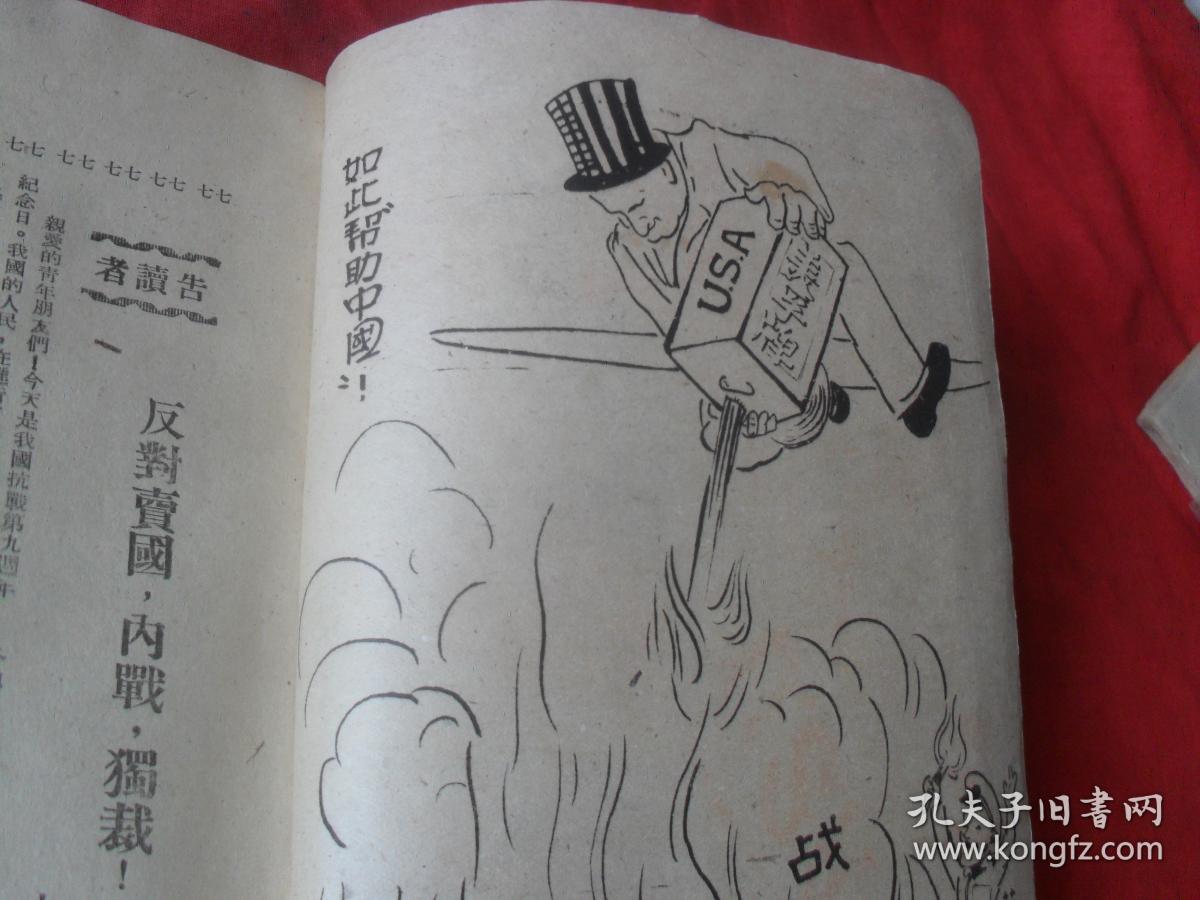 七七 七七 七七 七七 七七
告讀者
反對賣國，內戰，獨裁！
親愛的青年朋友們！今天是我國抗戰第九週年
紀念日。我國的人民，在
如此幫助中國！！
U.S.A
战
孔夫子旧书网
www.kongfz.com